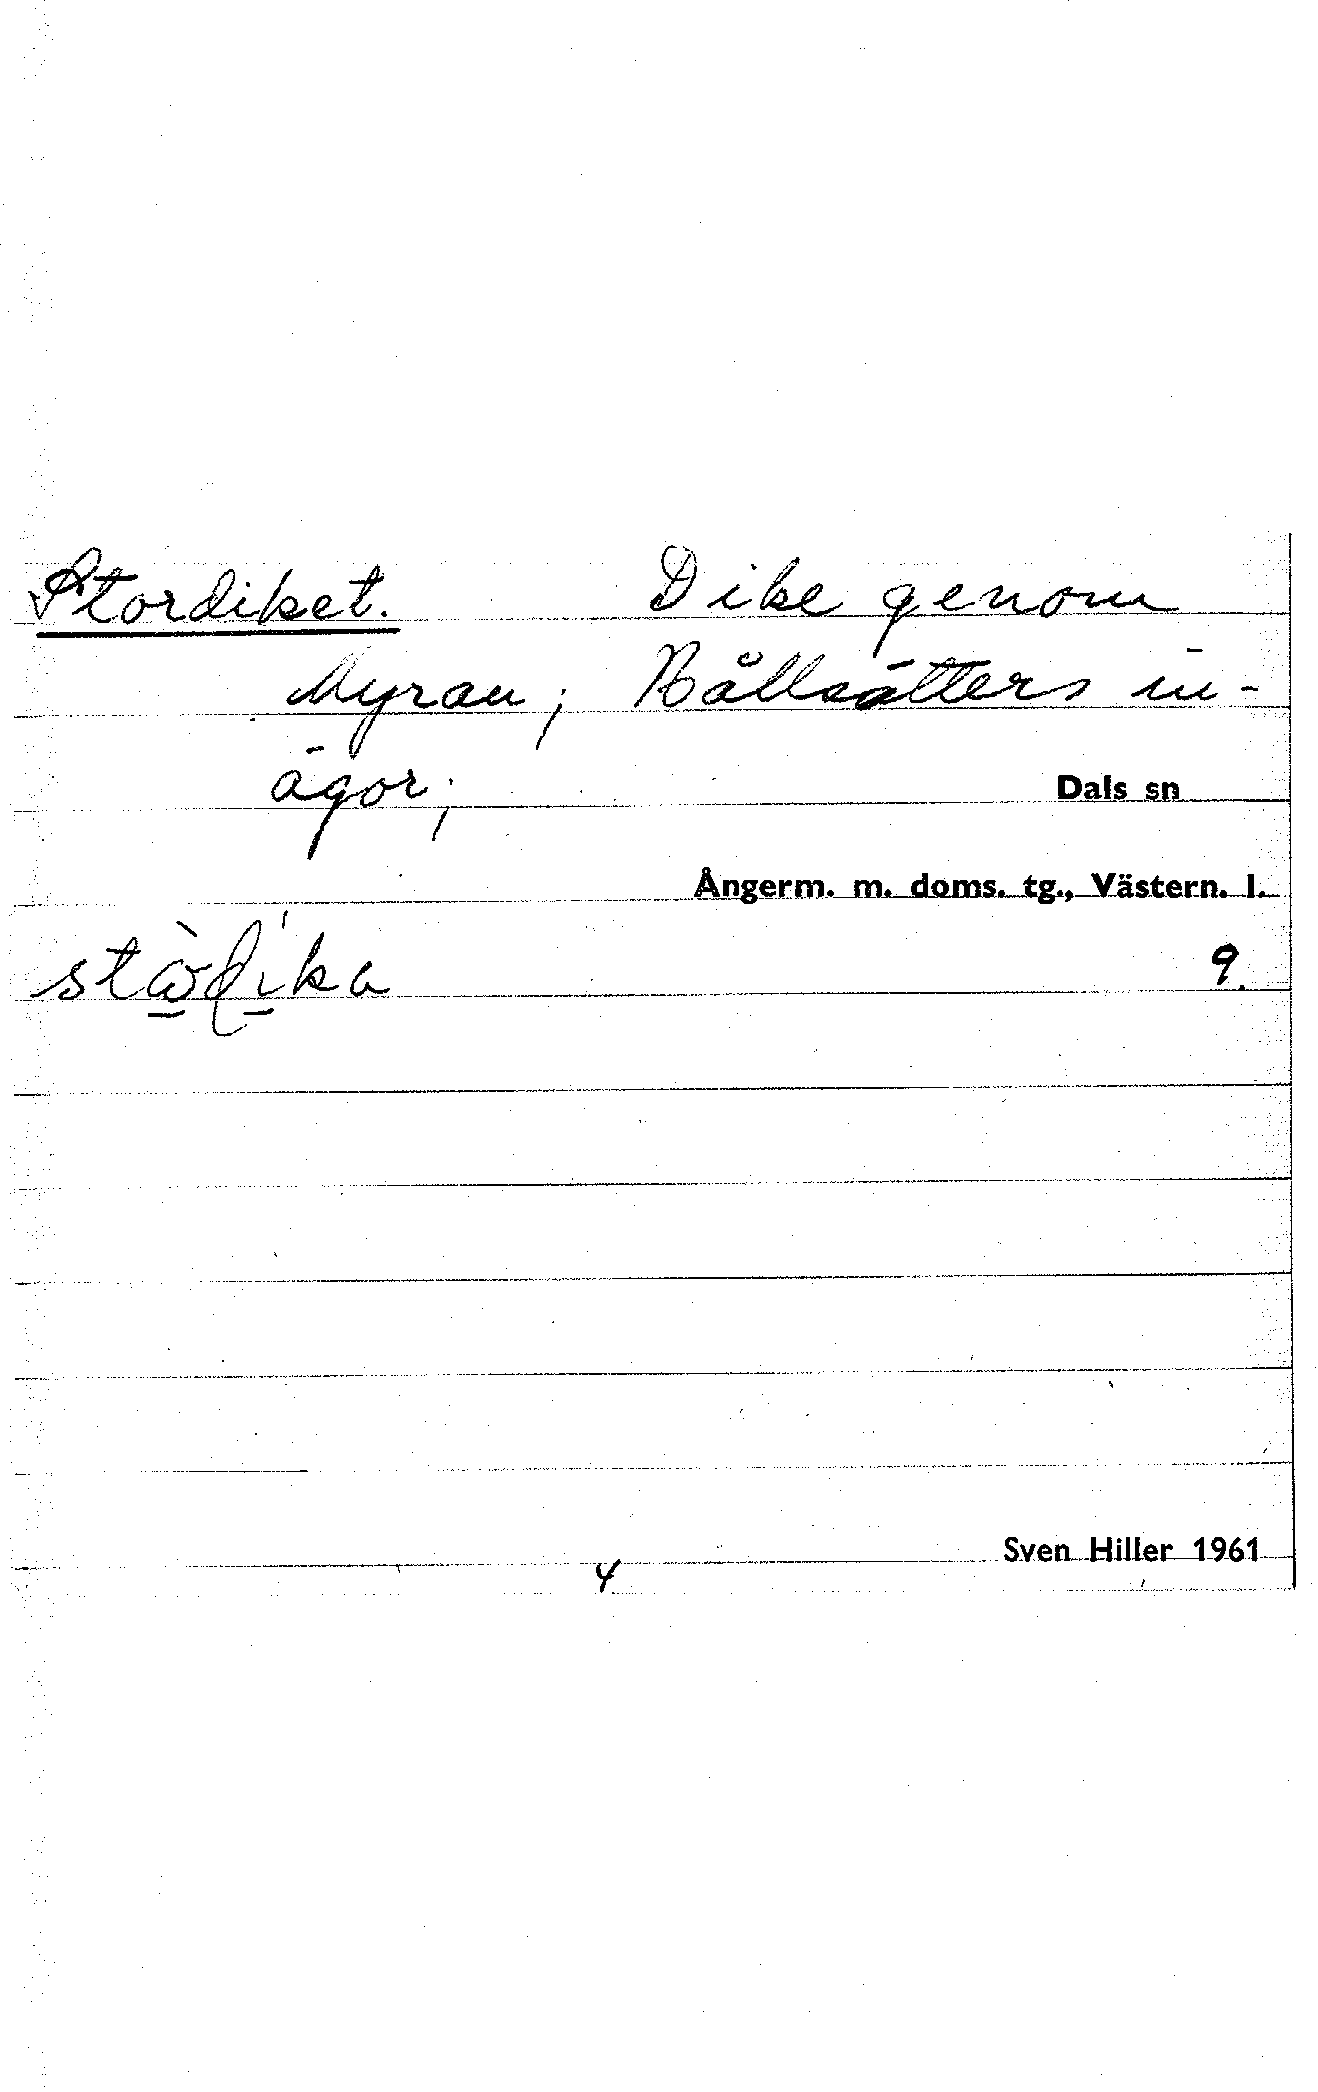 Stordiket. Dike genom
Myran; Bållsätters in-
ägor; Dals sn
Ångerm. m. doms. tg., Västern. l.
9.
Sven Hiller 1961
4